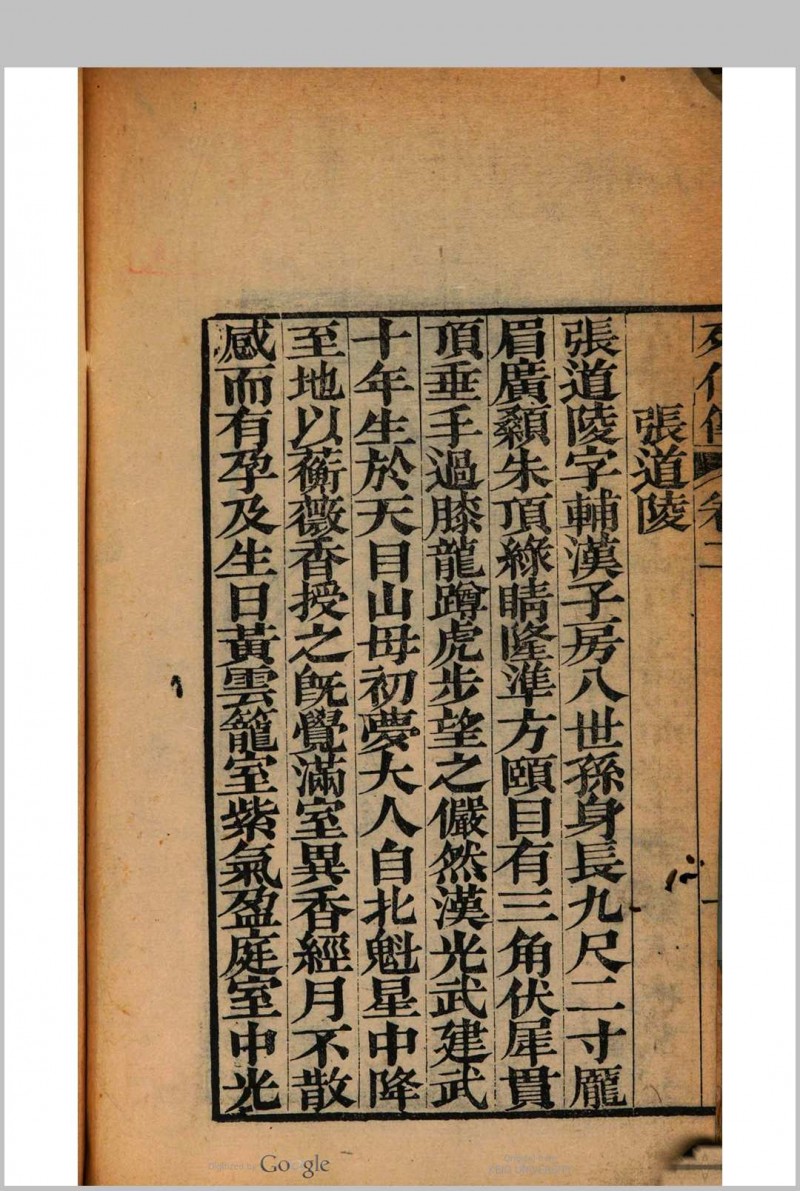 列仙傳 卷二
張道陵
張道陵字輔漢子房八世孫身長九尺二寸龐
眉廣顙朱頂綠睛隆準方頤目有三角伏犀貫
頂垂手過膝龍蹲虎步望之儼然漢光武建武
十年生於天目山母初夢大人自北魁星中降
至地以蘅薇香授之既覺滿室異香經月不散
感而有孕及生日黃雲籠室紫氣盈庭室中光
Digitized by Google